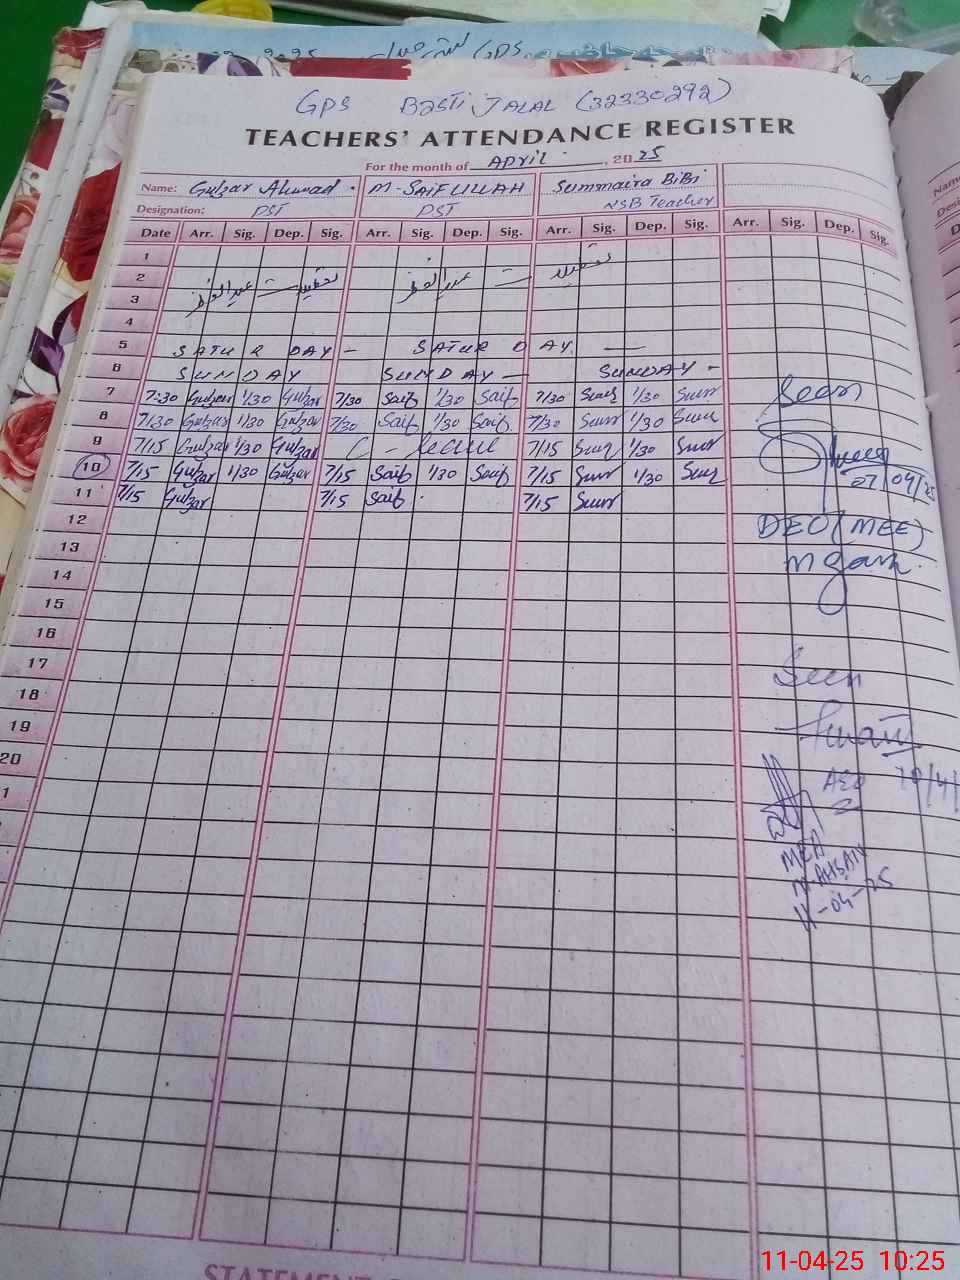 GPS BASTI JALAL (32330292)
TEACHERS' ATTENDANCE REGISTER
For the month of April, 2025
Name: Gulzar Ahmad M-SAIFULLAH Summaira BiBi
Designation: PST PST NSB Teacher
Date Arr. Sig. Dep. Sig. Arr. Sig. Dep. Sig. Arr. Sig. Dep. Sig. Arr. Sig. Dep. Sig.
1
2 تعطیلات عید الفطر تعطیلات عید الفطر تعطیلات
3
4
5 SATURDAY - SATURDAY
6 SUNDAY SUNDAY - SUNDAY -
7 7:30 Gulzar 1/30 Gulzar 7/30 Saif 1/30 Saif 7/30 Sumr 1/30 Sumr
8 7/30 Gulzar 1/30 Gulzar 7/30 Saif 1/30 Saif 7/30 Sumr 1/30 Sumr
9 7/15 Gulzar 1/30 Gulzar C - leave 7/15 Sumr 1/30 Sumr
10 7/15 Gulzar 1/30 Gulzar 7/15 Saif 1/30 Saif 7/15 Sumr 1/30 Sumr
11 7/15 Gulzar 7/15 Saif 7/15 Sumr
12
13
14
15
16
17
18
19
20
1
Seen
07/04/25
DEO (MEE)
M garh
Seen
AEO
MEA
11-04-25
11-04-25 10:25